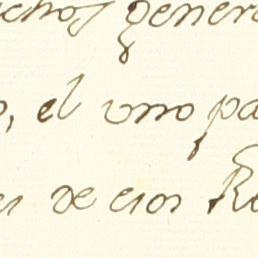 echos genera
o, el uno pa
es de esos Re